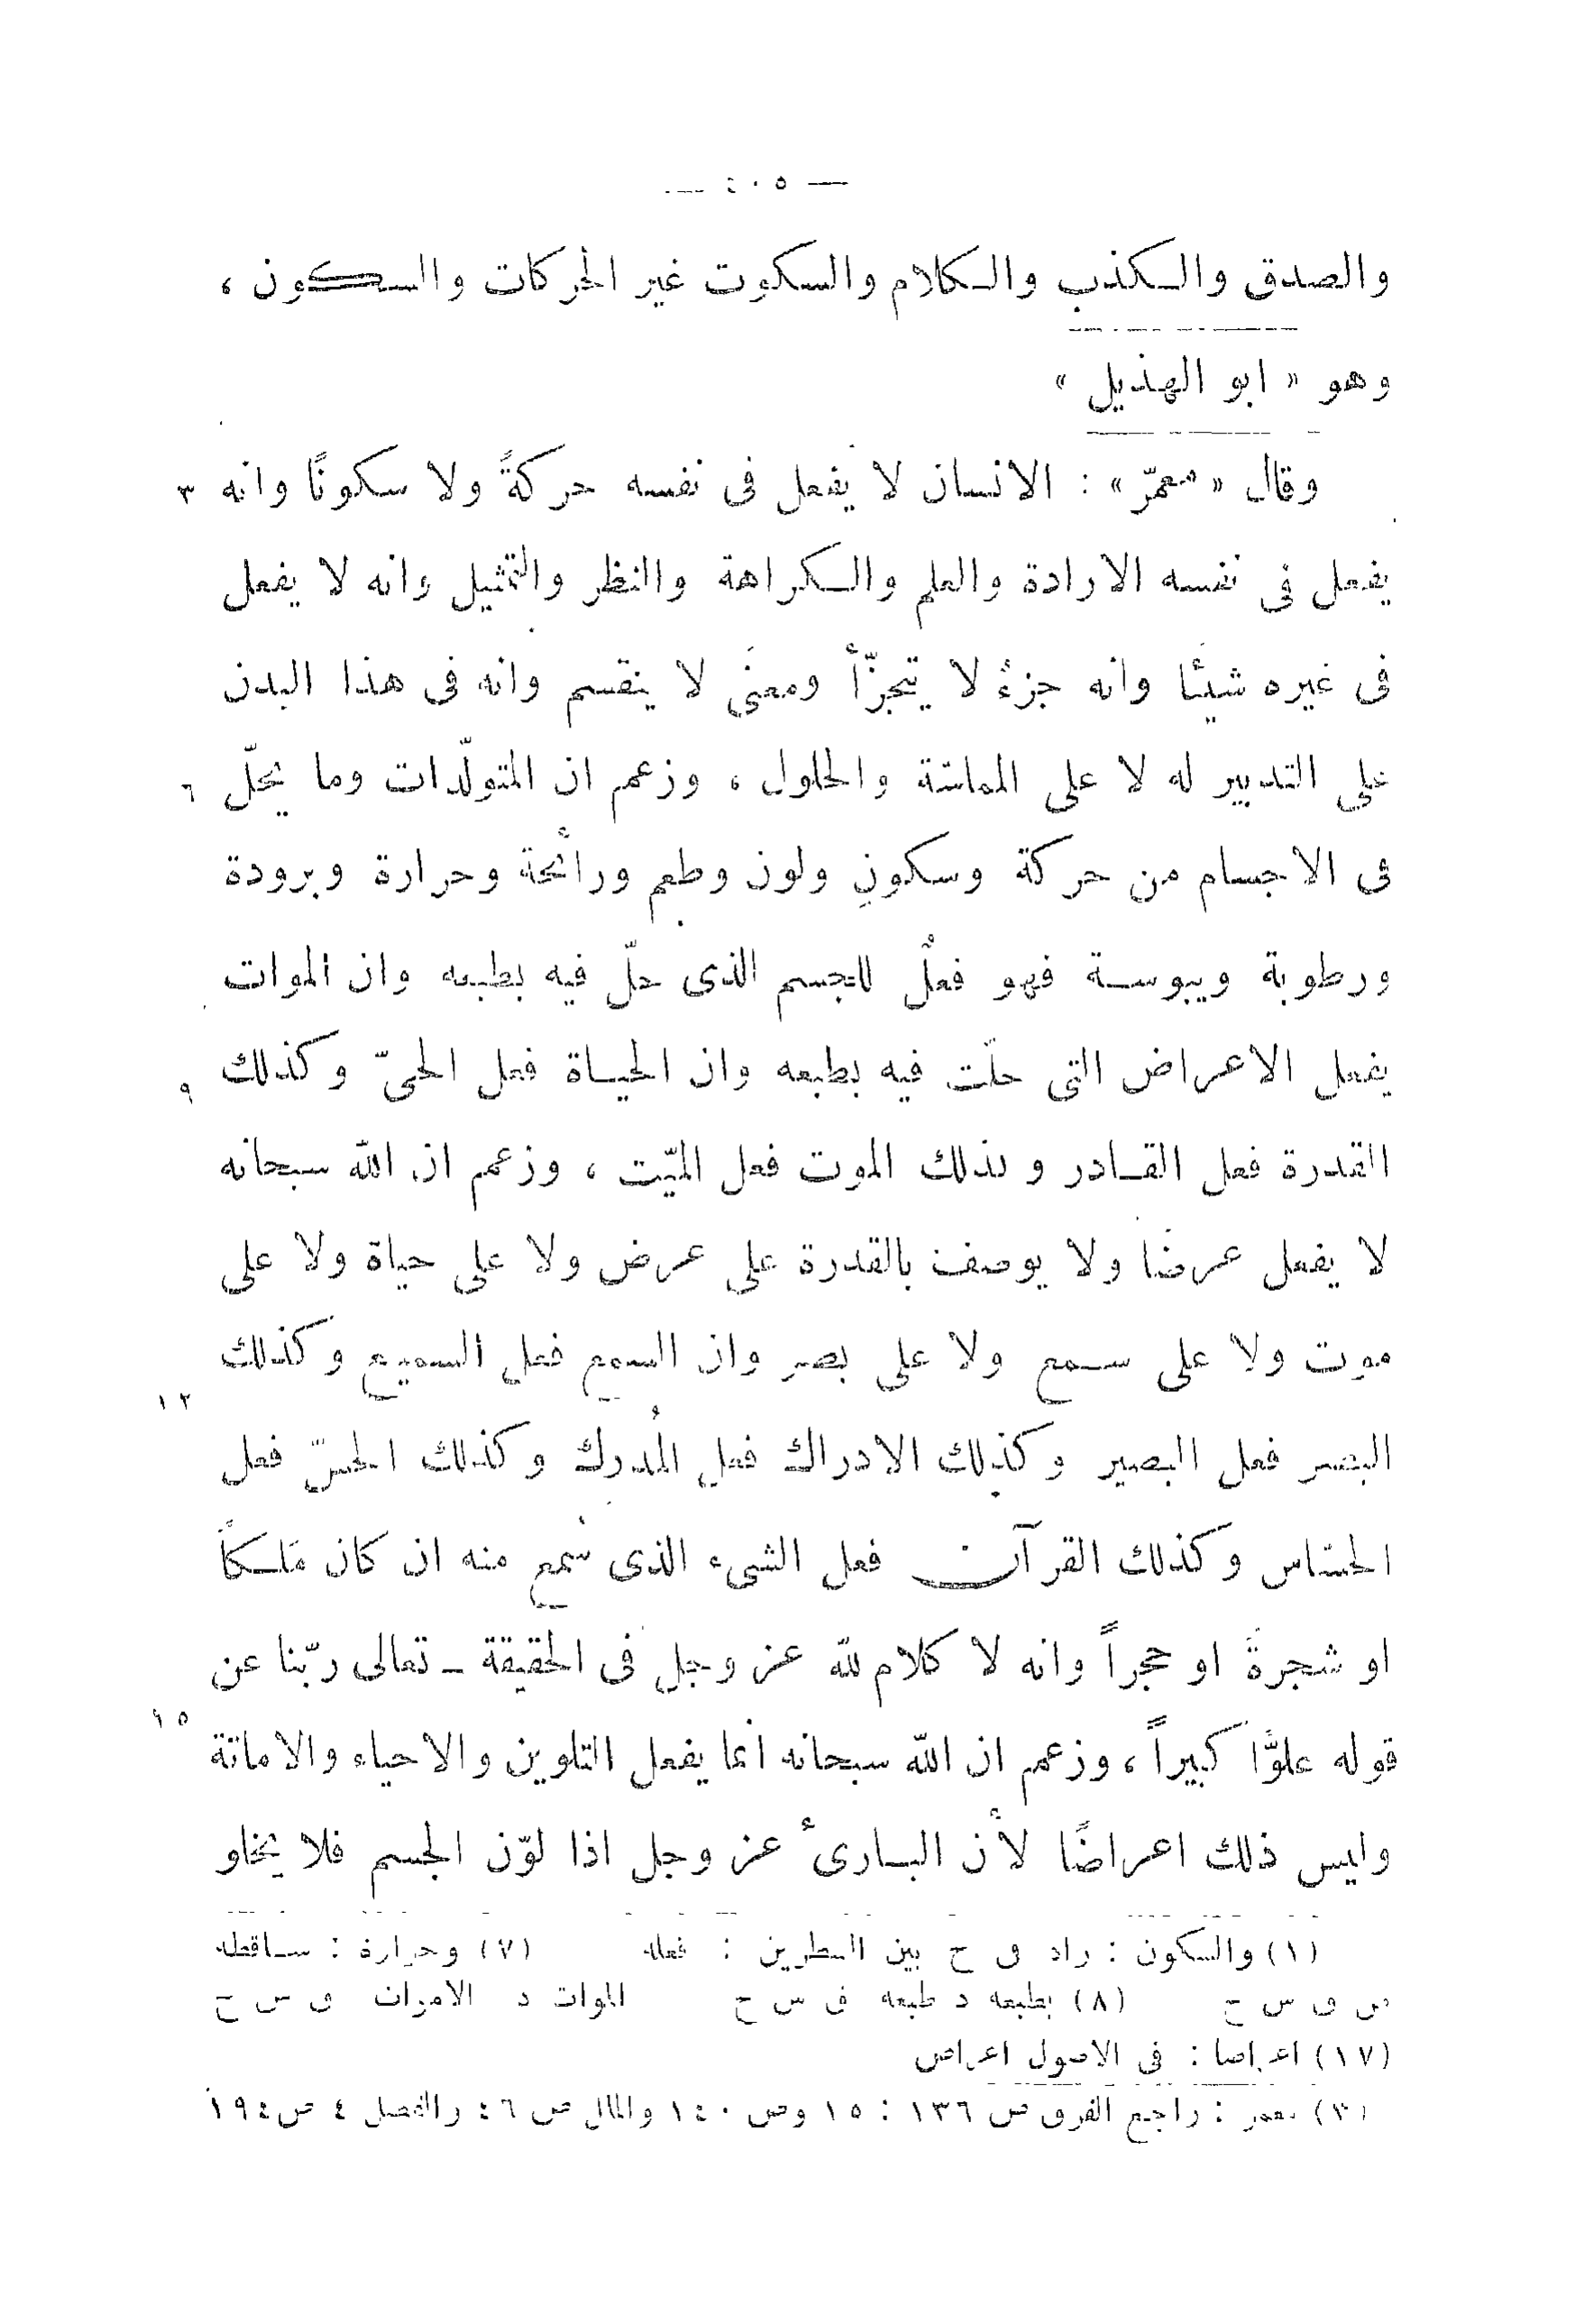 — ٤٠٥ —
والصدق والكذب والكلام والسكوت غير الحركات والسكون ،
وهو « ابو الهذيل »
وقال « معمّر » : الانسان لا يفعل فى نفسه حركةً ولا سكونًا وانه ٣
يفعل فى نفسه الارادة والعلم والكراهة والنظر والتمثيل وانه لا يفعل
فى غيره شيئًا وانه جزءٌ لا يتجزّأ ومعنًى لا ينقسم وانه فى هذا البدن
على التدبير له لا على المماسّة والحلول ، وزعم ان المتولّدات وما يحلّ ٦
فى الاجسام من حركة وسكونٍ ولون وطعم ورائحة وحرارة وبرودة
ورطوبة ويبوسة فهو فعلٌ للجسم الذى حلّ فيه بطبعه وان الموات
يفعل الاعراض التى حلّت فيه بطبعه وان الحياة فعل الحىّ وكذلك ٩
القدرة فعل القادر وكذلك الموت فعل الميّت ، وزعم ان الله سبحانه
لا يفعل عرضًا ولا يوصف بالقدرة على عرض ولا على حياة ولا على
موت ولا على سمع ولا على بصر وان السمع فعل السميع وكذلك ١٢
البصر فعل البصير وكذلك الادراك فعل المُدرك وكذلك الحسّ فعل
الحسّاس وكذلك القرآن فعل الشىء الذى سُمع منه ان كان مَلَكاً
او شجرةً او حجراً وانه لا كلام لله عز وجل فى الحقيقة ـ تعالى ربّنا عن
قوله علوًّا كبيراً ، وزعم ان الله سبحانه انما يفعل التلوين والاحياء والاماتة ١٥
وليس ذلك اعراضًا لأن البارئ عز وجل اذا لوّن الجسم فلا يخلو
(١) والسكون : زاد فى ح بين السطرين : فعله (٧) وحرارة : ساقطة
من ق س ح (٨) بطبعه د طبعه ق س ح الموات د الاموات ق س ح
(١٧) اعراضا : فى الاصول اعراض
(٣) معمر : راجع الفرق ص ١٣٦ : ١٥ وص ١٤٠ والملل ص ٤٦ والفصل ٤ ص ١٩٤